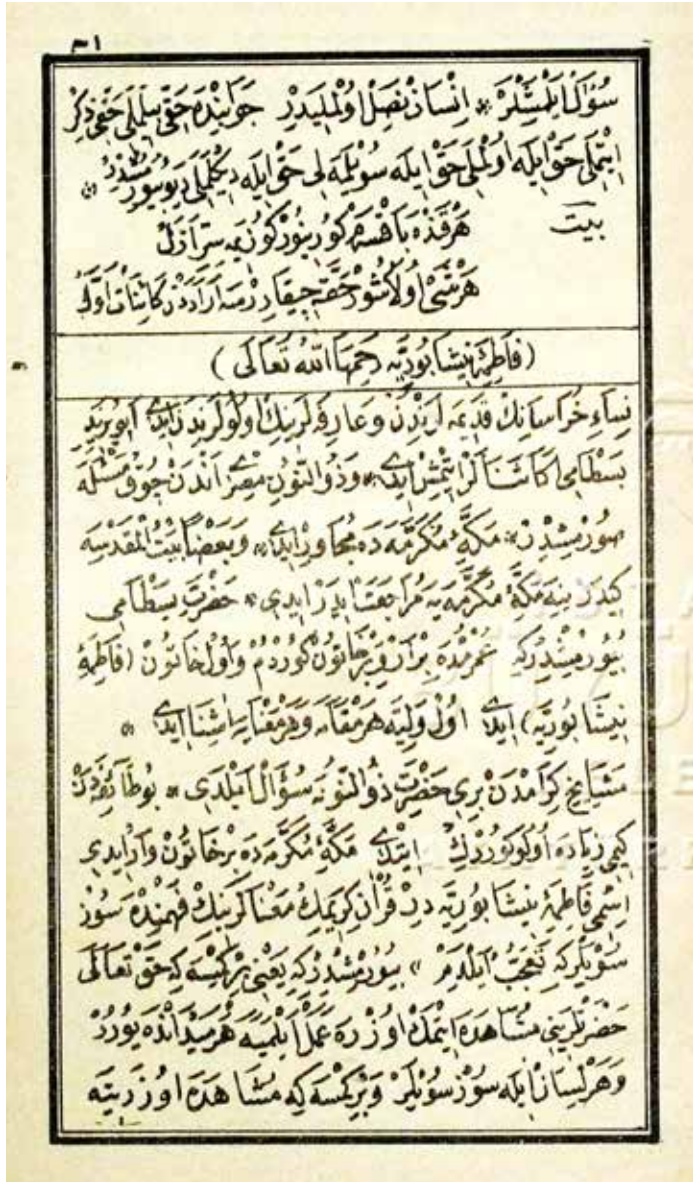 ٣١
سُؤَالْ اَيْلَمِشْلَرْ * اِنْسَانْ نَصِلْ اُولْمَلِيدِرْ جَوَابِنْدَه حَقِّى بِيلْمَلِى حَقِّى ذِكْرْ
اِيتْمَلِى حَقْ اِيلَه اُولْمَلِى حَقْ اِيلَه سُويْلَمَه لِى حَقْ اِيلَه دِيكْلَمَلِى دِيُو بُيُورْمُشْدُرْ *
بيت هَرْ قَنْدَه بَاقْسَه‌م كُورِينُورْ كُوزُمَه سِرِّ اَزَلْ
هَرْ شَىْ اُولُاشُورْ حَقَّه چِيقَارِرْسَه اَرَادَنْ كَائِنَاتْ اَوَّلْ
(فَاطِمَۀ نِيشَابُورِيَّه رَحِمَهَا اللّٰهُ تَعَالَى)
نِسَاءِ خُرَاسَانِكْ قَدِيمَه لَرِنْدِنْ وَ عَارِفَه لَرِينِكْ اُولُولَرِنْدَنْ اِيدِى اَبُو يَزِيدِ
بَسْطَامِى اَكَا ثَنَالَرْ اِيتْمِشْ اِيدِى * وَ ذُو النُّونِ مِصْرِى اَنْدَنْ چُوقْ مَسْئَلَه
صُورْمِشْدِرْ * مَكَّۀ مُكَرَّمَه دَه مُجَاوِرْ اِيدِى * وَ بَعْضًا بَيْتُ الْمَقْدَسَه
كِيدَرْ يِنَه مَكَّۀ مُكَرَّمَه يَه مُرَاجَعَتْ اِيدَرْ اِيدِى * حَضْرَتِ بَسْطَامِى
بُيُورْمِشْدِرْكِه عُمْرِمْدَه بِرْ اَرْ وَ بِرْ خَاتُونْ كُورْدُمْ وَ اُولْ خَاتُونْ (فَاطِمَۀ
نِيشَابُورِيَّه) اِيدِى اُولْ وَلِيَّه هَرْ مَقَامَه وَ هَرْ مَعْنَايَه اٰشِنَا اِيدِى *
مَشَايِخِ كِرَامْدَنْ بِرِى حَضْرَتِ ذُو النُّونَه سُؤَالْ اَيْلَدِى * بُو طَائِفَه دَنْ
كِيمِى زِيَادَه اُولُو كُورْدُكْ اِيتْدِى مَكَّۀ مُكَرَّمَه دَه بِرْ خَاتُونْ وَارْ اِيدِى
اِسْمِى فَاطِمَۀ نِيشَابُورِيَّه دِرْ قُرْاٰنِ كَرِيمِكْ مَعْنَالَرِينِكْ فَهْمِنْدَه سُوزْ
سُويْلَرْكِه تَعَجُّبْ اَيْلَدِمْ * بُيُورْمِشْدُرْكِه يَعْنِى بِرْ كِيمْسَه كِه حَقْ تَعَالَى
حَضْرَتْلَرِينِى مُشَاهَدَه اِيتْمَكْ اوُزْرَه عَمَلْ اَيْلَمِيَه هَرْ مَيْدَانْدَه يُورُرْ
وَ هَرْ لِسَانْ اِيلَه سُوزْ سُويْلَرْ وَ بِرْ كِمْسَه كِه مُشَاهَدَه اوُزَرِينَه